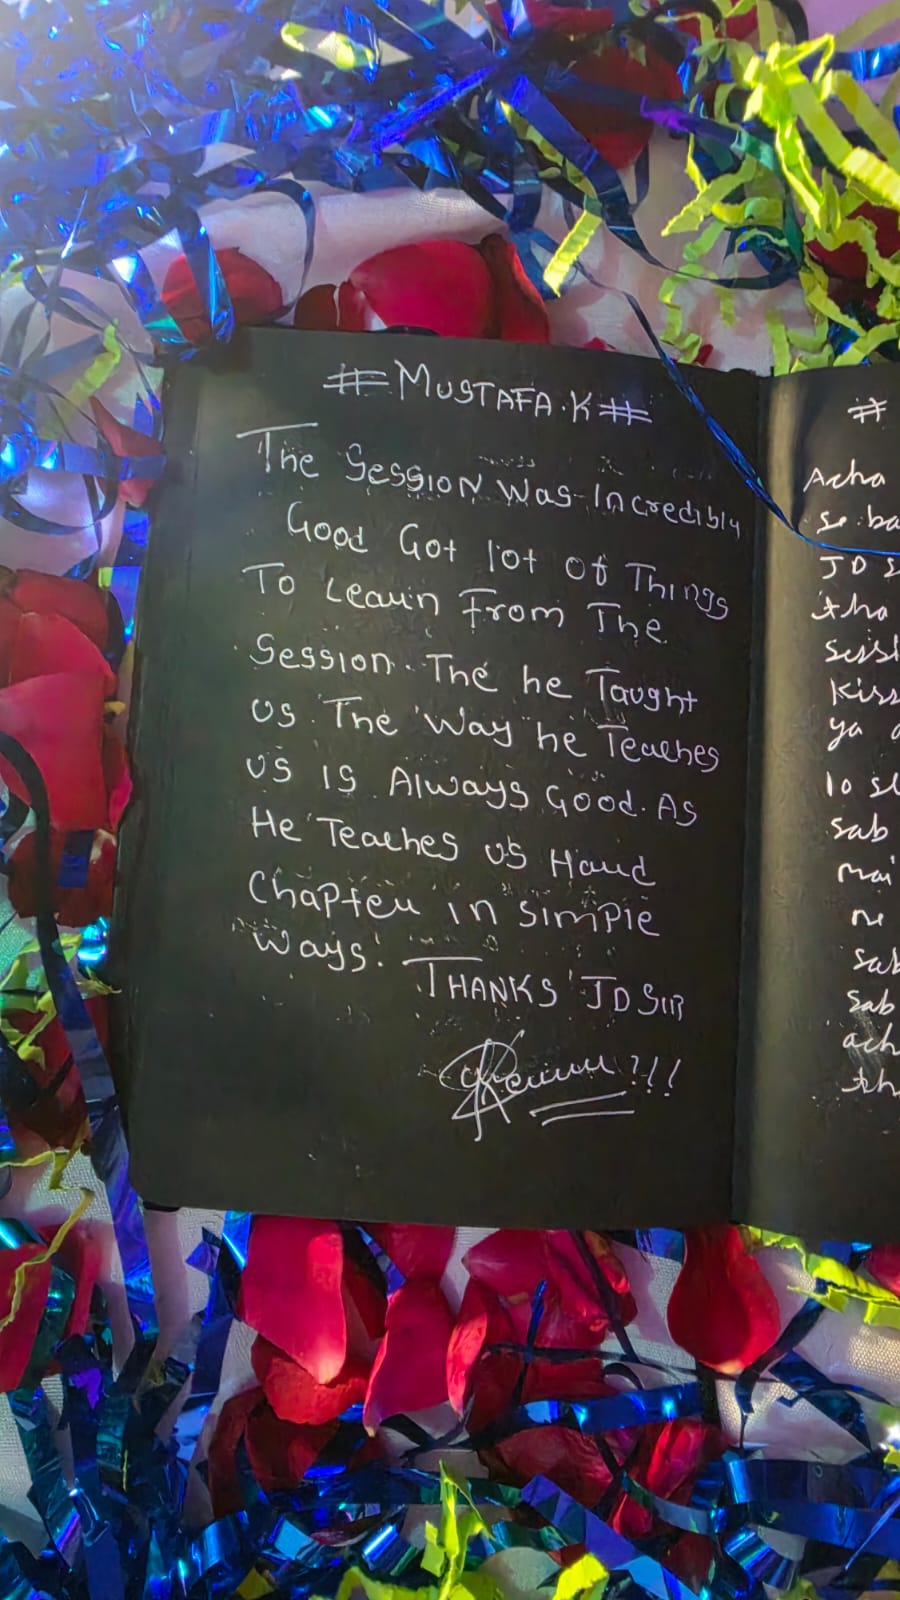 # MUSTAFA.K #
The Session was Incredibly
Good Got lot of Things
To Learn From The
Session. The he Taught
us. The way he Teaches
us is Always Good. As
He Teaches us Hard
Chapter in simple
ways. THANKS JD SIR
!!!
#
Acha
se ba
JD s
tha
sessi
Kiss
ya
lo sl
sab
mai
ne
sab
sab
ach
th